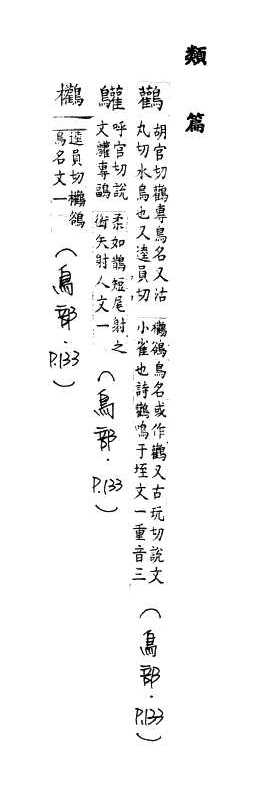 類篇
鸛 胡官切鸛專鳥名又沽
丸切水鳥也又逵員切
鸛鵒鳥名或作鸛又古玩切說文
小雀也詩鸛鳴于垤文一重音三
(鳥部.P.133)
呼官切說
文專
柔如鵲短尾射之
銜矢射人文一
(鳥部.P.133)
逵員切鵒
鳥名文一
(鳥部.P.133)